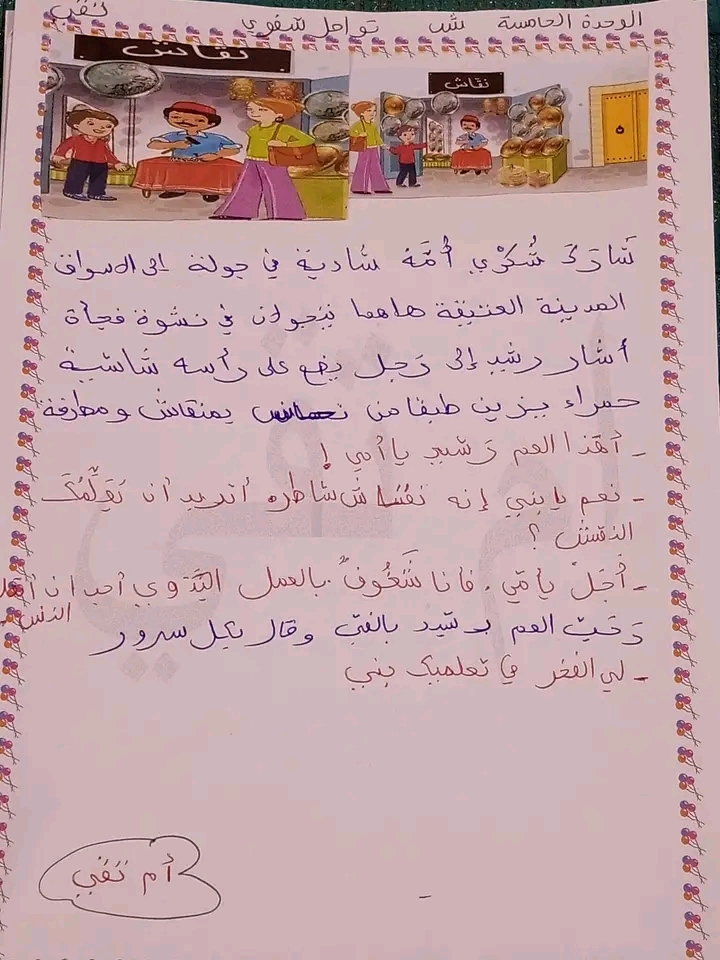 الوحدة الخامسة تواصل شفوي تقي
نقاش
نقاش
شَارَكَ شُكْرِي أُمَّهُ شَادية في جولة إلى الاسواق
المدينة العتيقة هاهما يتجولان في نشوة فجأة
أشار رشيد إلى رَجل يضع على رأسه شاشية
حمراء يزين طبقا من نحاس بمنقاش ومطرقة
- أهذا العم رَشيد يا أمي !
- نعم يا بني إنه نقاش شاطر. أتريد أن تَعَلُّمَكَ
النقش ؟
- أَجَلْ يا أمّي. فأنا شَغُوفٌ بالعمل اليَدَوي أحب ان أتعلم
النقش
رَحَّبَ العم رشيد بالفتى وقال بكل سرور
- لي الفَخْر في تعلمك بني
أم تقي